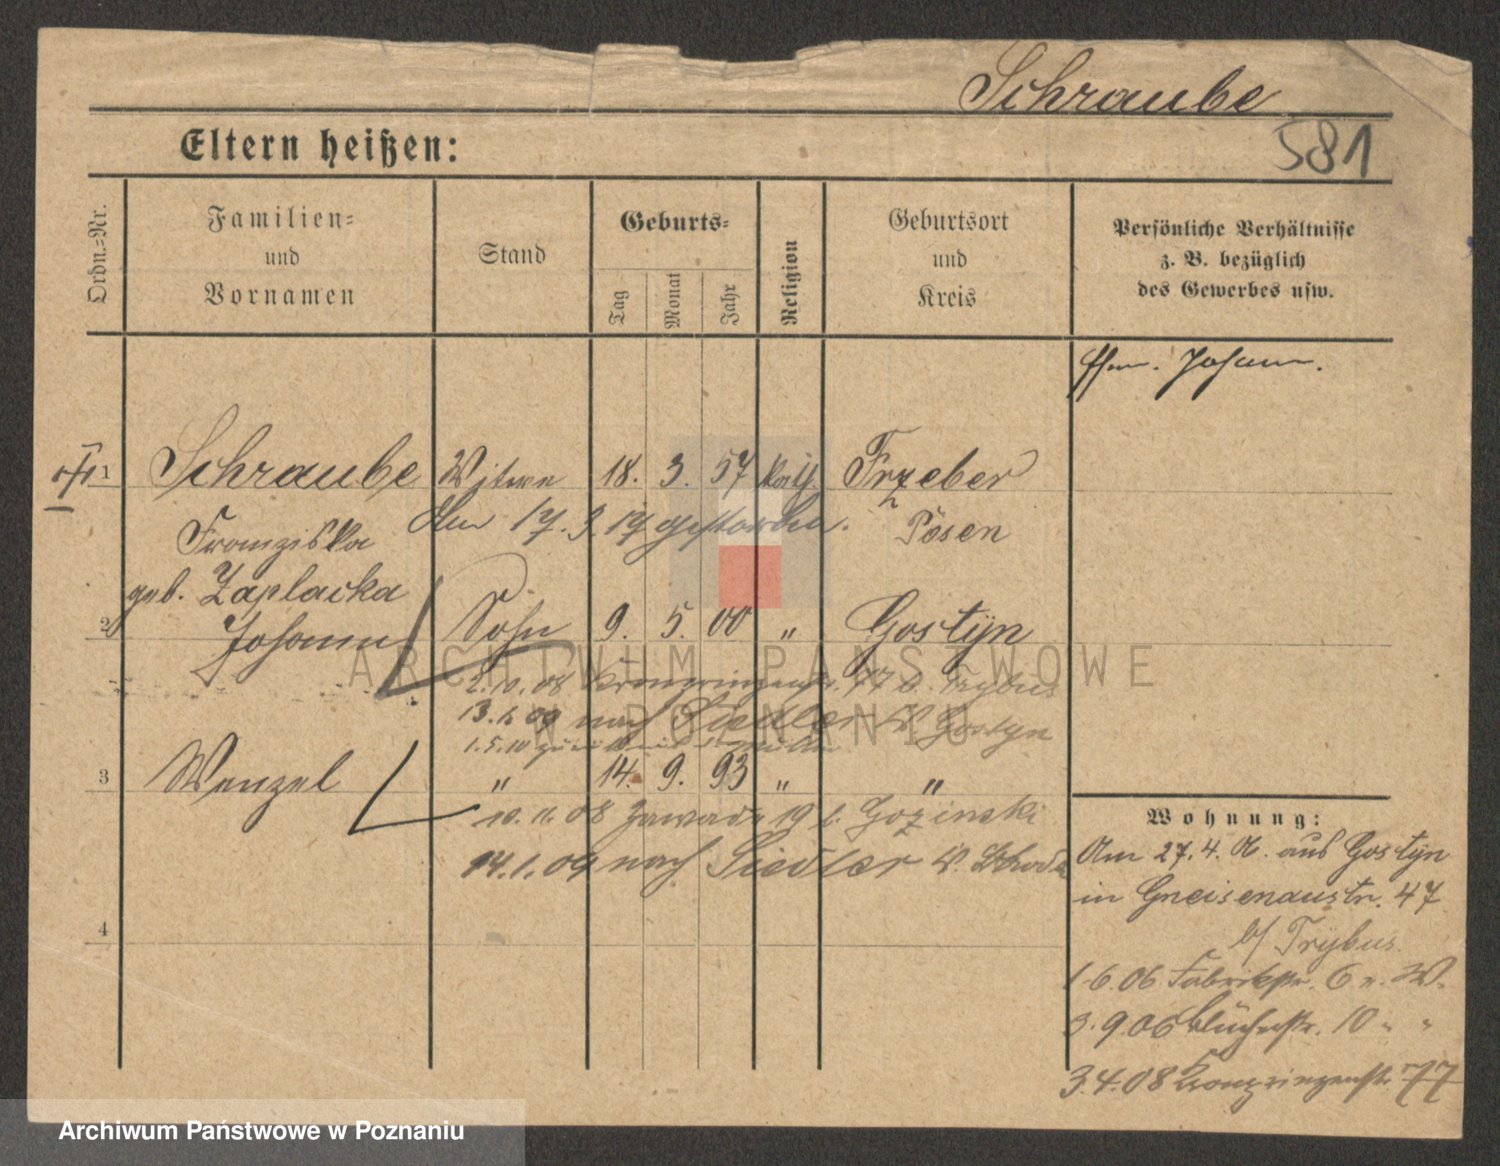 Schraube
581
Eltern heißen:
Ordn.=Nr.
Familien=
und
Vornamen
Stand
Geburts=
Tag
Monat
Jahr
Religion
Geburtsort
und
Kreis
Persönliche Verhältnisse
z. B. bezüglich
des Gewerbes usw.
Johann.
1 Schraube Witwe 18. 3. 57 kath. Frzeber
Am 17. 3. 19 gestorben.
Franziska
Posen
geb. Zaplacka
2 Johann Sohn 9. 5. 00 " Gostyn
2.10.08 Kronprinzenstr. 77 b. Trybus
13.1.09 nach Siedler K. Gostyn
1.5.10
3 Wenzel " 14. 9. 93 " "
10.11.08 Zawade 19 b. Gozinski
14.1.09 nach Siedler K. Schroda
4
Wohnung:
Am 27.4.06. aus Gostyn
in Gneisenaustr. 47
b/ Trybus.
1.6.06 Fabrikstr. 6 n. W.
3.9.06 Blücherstr. 10 " "
3.4.08 Kronprinzenstr. 77
ARCHIWUM PAŃSTWOWE
W POZNANIU
Archiwum Państwowe w Poznaniu